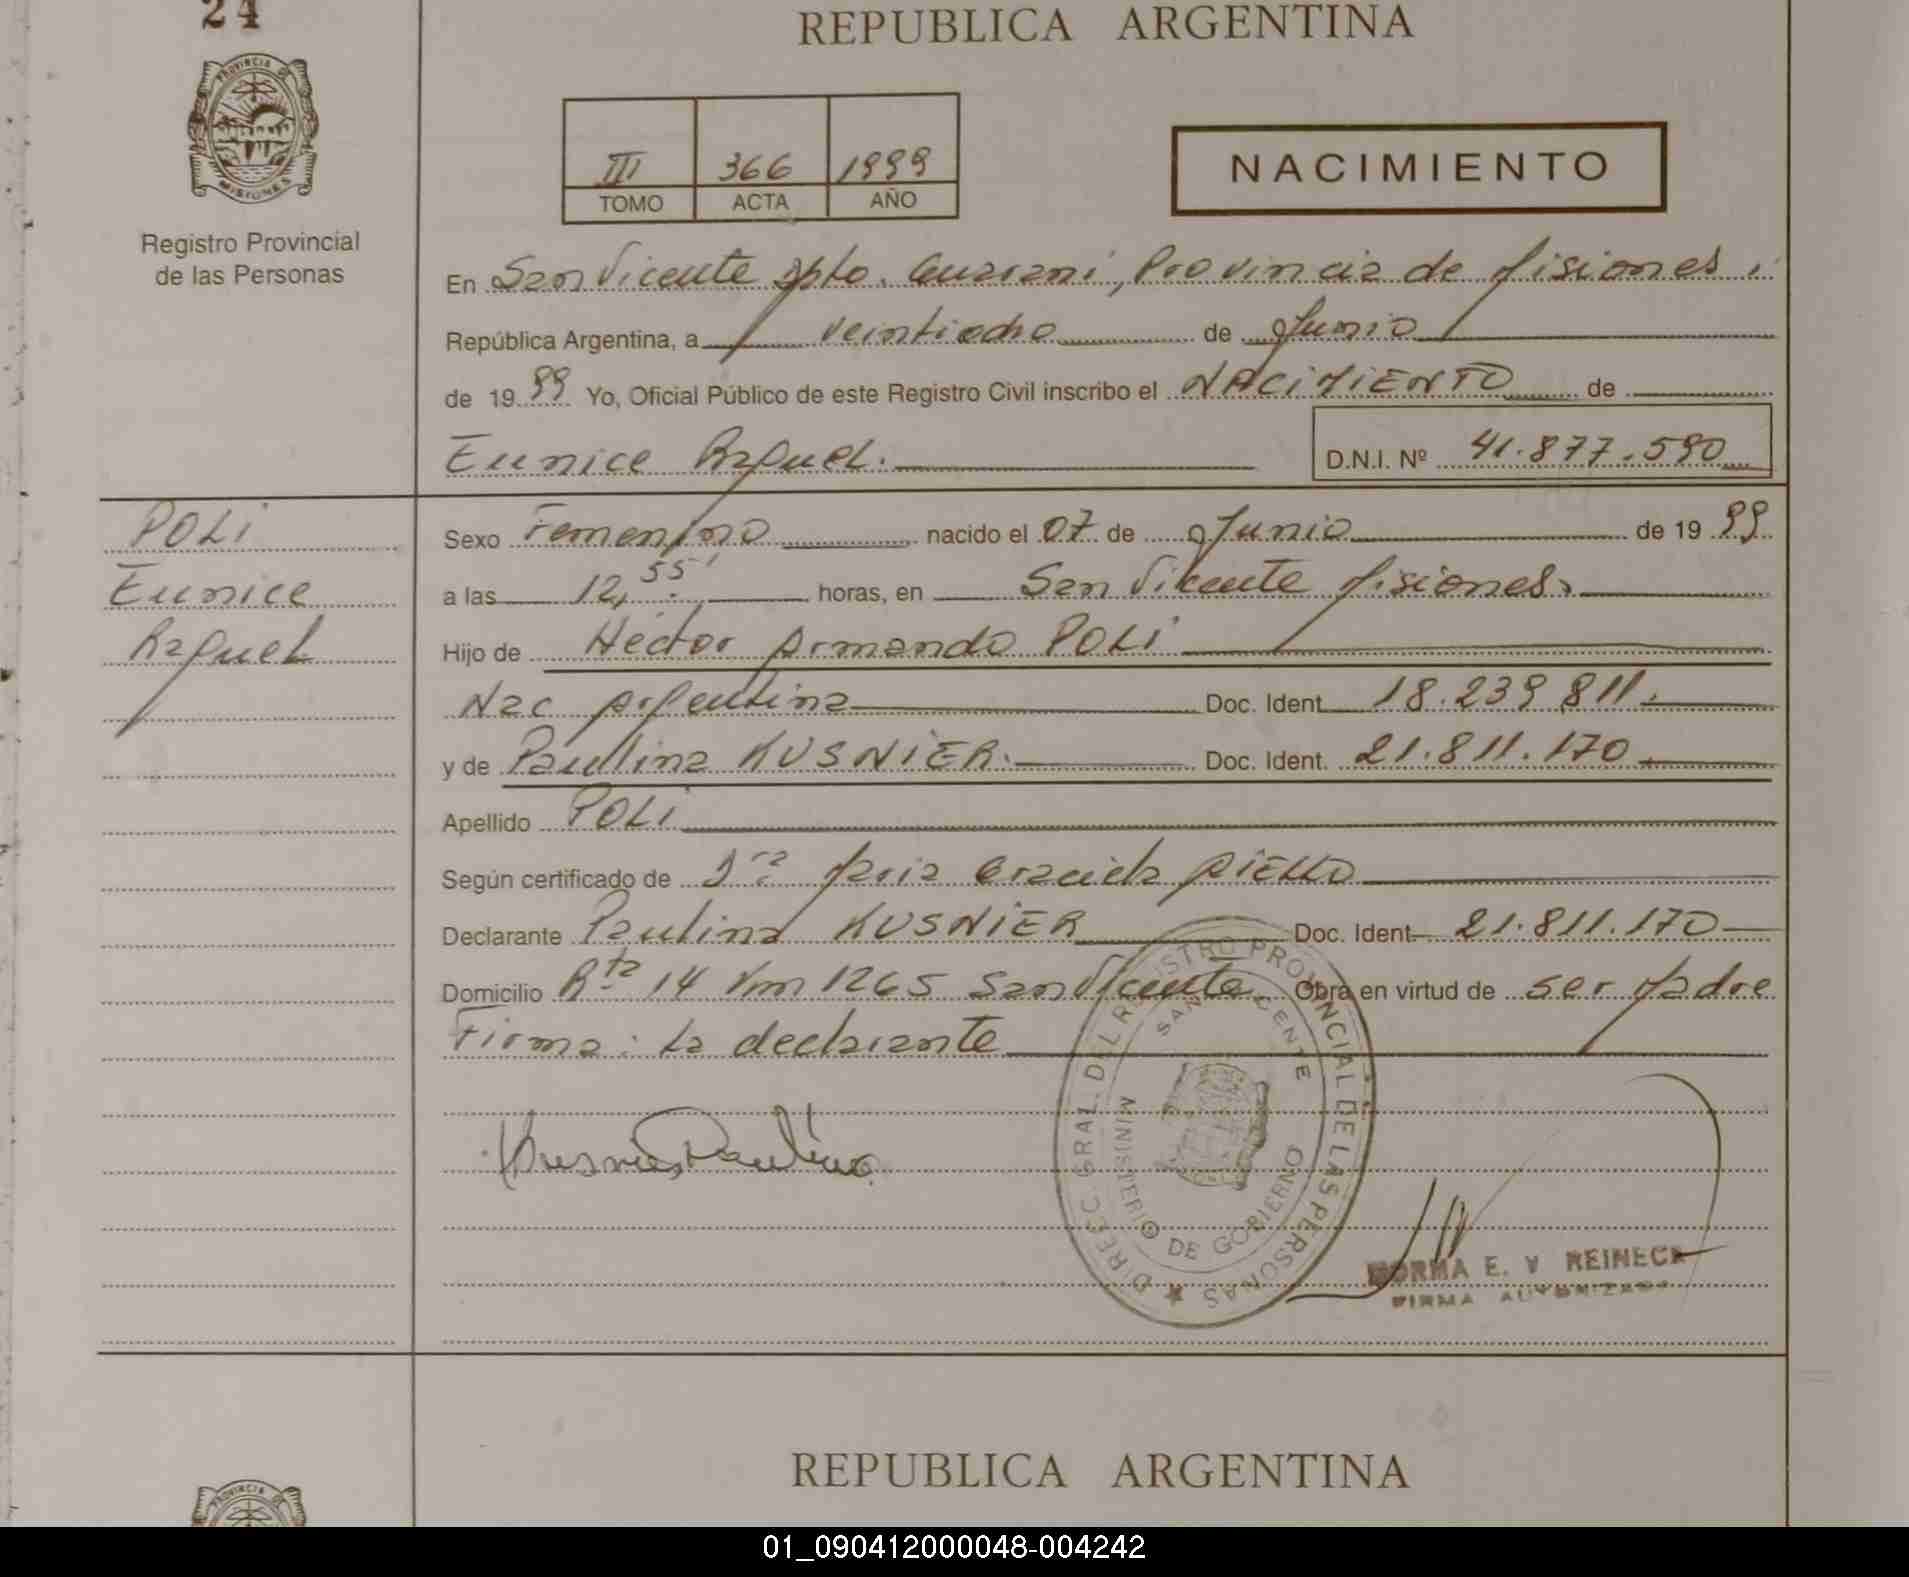 24
PROVINCIA DE
MISIONES
Registro Provincial
de las Personas
REPUBLICA ARGENTINA
III 366 1999
TOMO ACTA AÑO
NACIMIENTO
En San Vicente Dpto. Guaraní, Provincia de Misiones,
República Argentina, a veintiocho de Junio
de 1999 Yo, Oficial Público de este Registro Civil inscribo el NACIMIENTO de
Eunice Raquel. D.N.I. Nº 41.877.590
POLI
Eunice
Raquel
Sexo Femenino nacido el 07 de Junio de 1999
a las 12,55' horas, en San Vicente Misiones.
Hijo de Héctor Armando POLI
Nac Argentina Doc. Ident. 18.239.811.
y de Paulina KUSNIER. Doc. Ident. 21.811.170
Apellido POLI
Según certificado de Dra María Graciela AIELLO
Declarante Paulina KUSNIER Doc. Ident. 21.811.170
Domicilio Rta 14 Km 1265 San Vicente Obra en virtud de ser Madre
Firma: La declarante
Kusnier Paulina
DIREC. GRAL. DEL REGISTRO PROVINCIAL DE LAS PERSONAS
SAN VICENTE
MINISTERIO DE GOBIERNO
NORMA E. V REINECK
FIRMA AUTORIZADA
REPUBLICA ARGENTINA
PROVINCIA DE
01_090412000048-004242